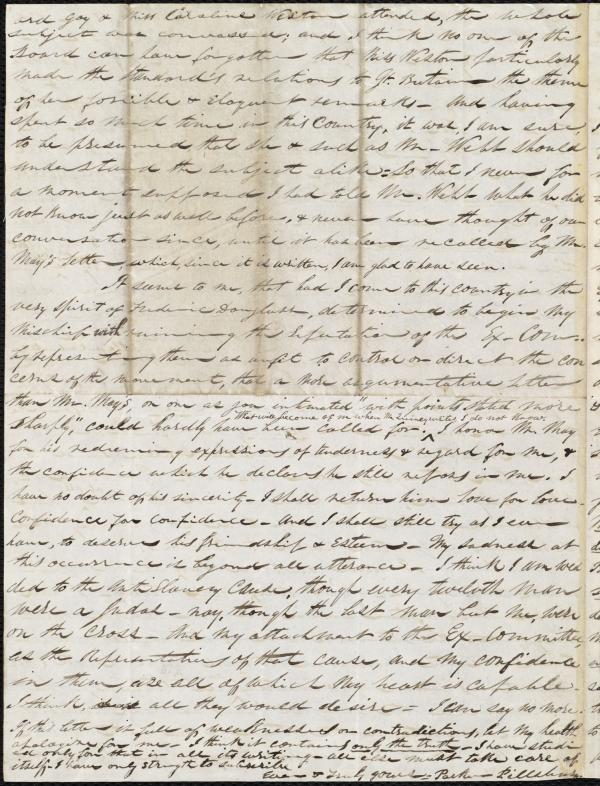 ard Gay & Miss Caroline Weston attended, the whole
subject was canvassed; and I think no one of the
Board can have forgotten that Miss Weston particularly
made the Standard's relations to Gt. Britain the theme
of her forcible & eloquent remarks – and having
spent so much time in this Country, it was, I am sure,
to be presumed that she & such as Mr. Webb should
understand the subject alike = So that I never for
a moment supposed I had told Mr. Webb what he did
not know just as well before, & never have thought of our
conversation since, until it has been recalled by Mr.
May's letter, which, since it is written, I am glad to have seen.
It seems to me, that had I come to this country in the
very spirit of Frederic Douglass, determined to begin my
mischief with ruining the reputation of the Ex-Com.
by representing them as unfit to control or direct the con
cerns of the movement, that a more argumentative letter
than Mr. May's or one as you intimated "with points stated more
sharply" could hardly have been called for. ^ I honor Mr. May
That will become of me when the time comes I do not know.
for his redeeming expressions of tenderness & regard for me, &
the confidence which he declares he still reposes in me. I
have no doubt of his sincerity – I shall return him love for love –
Confidence for confidence – And I shall still try as I ever
have, to deserve his friendship & Esteem – My sadness at
this occurrence is beyond all utterance – I think I am wed
ded to the Anti Slavery Cause, though every twelfth man
were a Judas – nay, though the last man but me, were
on the Cross – And my attachment to the Ex-Committee,
as the Representatives of that cause, and my confidence
in them, are all of which my heart is capable –
I think, all they would desire = I can say no more.
If this letter is full of weakness or contradictions, let my health
apologize for me – I think it contains only the truth – I have studi
ed only for that in all its writing – all else must take care of
itself – I have only strength to subscribe
Ever – & truly yours = Park – Pillsbury